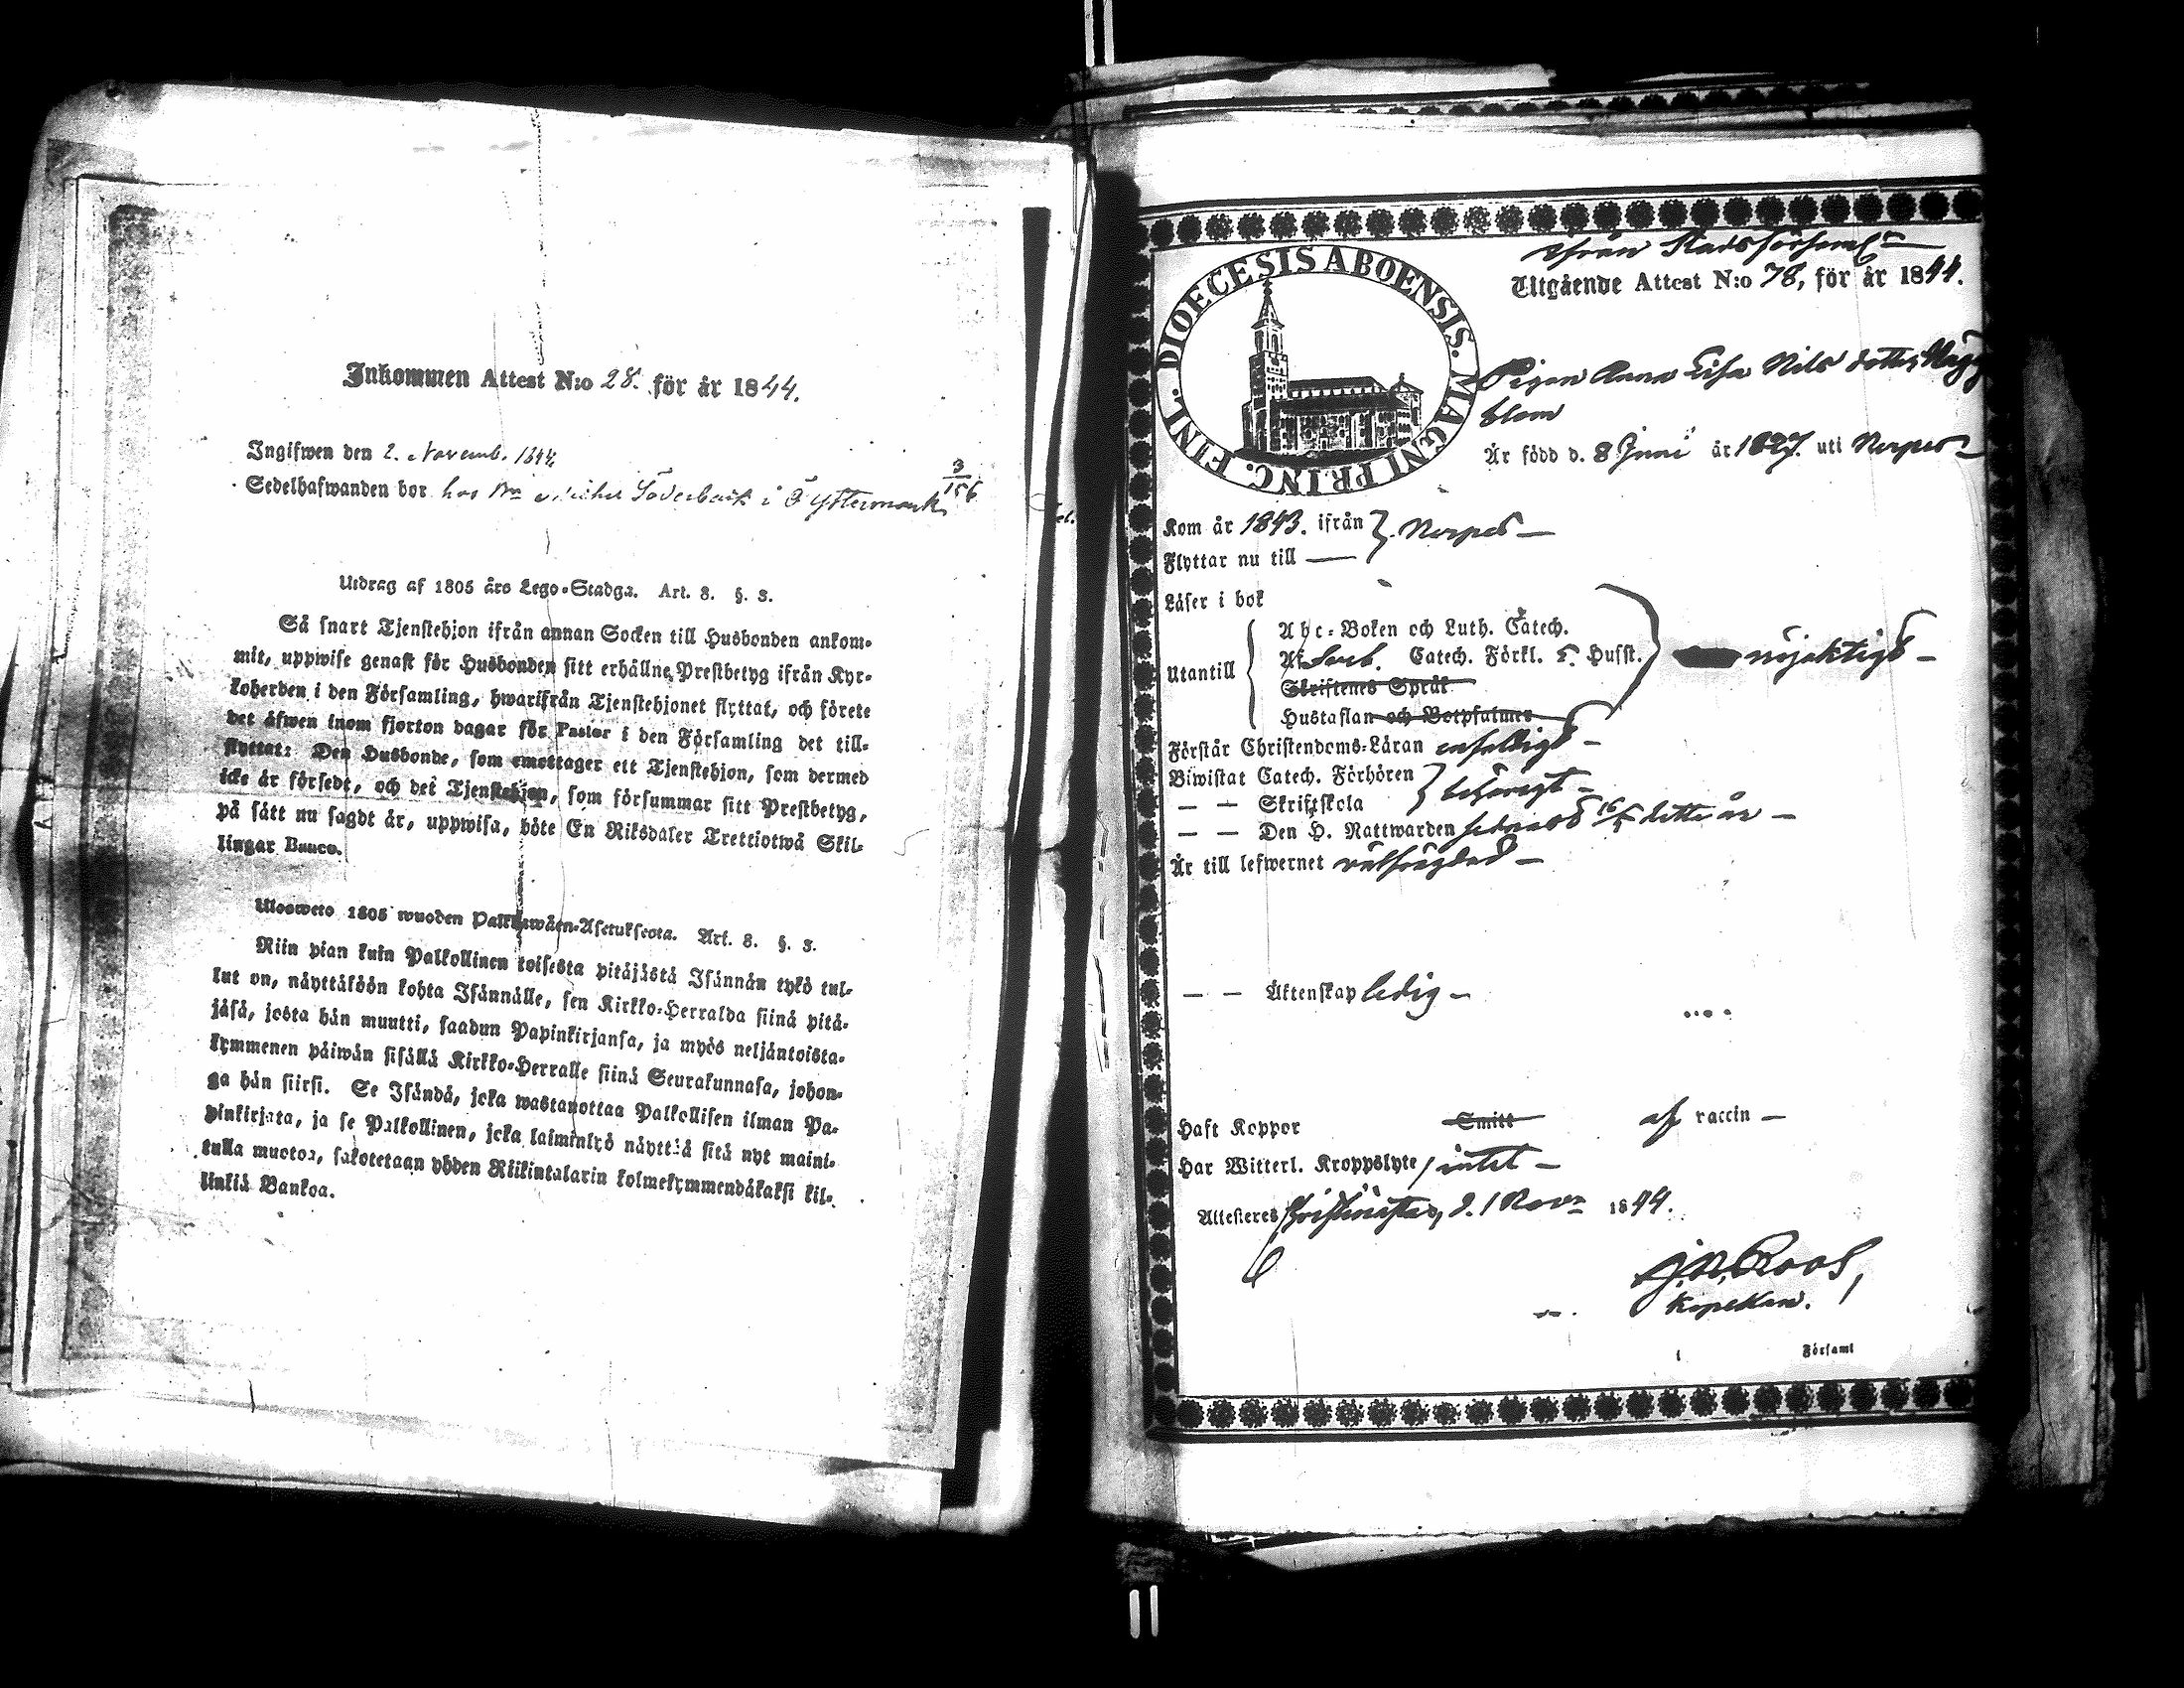 Inkommen Attest N:o 28. för år 1844.
Ingifwen den 2. Novemb. 1844.
Sedelhafwanden bor hos Söderback i Öystermark
3
156
Utdrag af 1805 års Lego-Stadga. Art. 8. §. 3.
Så snart Tjenstehjon ifrån annan Socken till Husbonden ankom-
mit, uppwise genast för Husbonden sitt erhållne Prestbetyg ifrån Kyr-
koherden i den Församling, hwarifrån Tjenstehjonet flyttat, och förete
det äfwen inom fjorton dagar för Pastor i den Församling det till-
flyttat: Den Husbonde, som emottager ett Tjenstehjon, som dermed
icke är försedt, och det Tjenstehjon, som försummar sitt Prestbetyg,
på sätt nu sagdt är, uppwisa, böte En Riksdaler Trettiotwå Skil-
lingar Banco.
Uloswето 1805 wuoden Palkkawäen-Asetuksesta. Art. 8. §. 3.
Niin pian kuin Palkollinen toisesta pitäjästä Isännän tykö tul-
lut on, näyttäköön kohta Isännälle, sen Kirkko-Herralda siinä pitä-
jäsä, josta hän muutti, saadun Papinkirjansa, ja myös neljäntoista-
kymmenen päiwän sisällä Kirkko-Herralle siinä Seurakunnasa, johon-
ga hän siirsi. Se Isändä, joka wastanottaa Palkollisen ilman Pa-
pinkirjata, ja se Palkollinen, joka laiminlyö näyttää sitä nyt maini-
tulla muotoa, sakotetaan yhden Riikintalarin kolmekymmendäkaksi kil-
linkiä Bankoa.
ifrån Stadsförsaml
Utgående Attest N:o 78, för år 1844.
DIOECESIS ABOENSIS. MAGNI PRINC. FINL.
Pigan Anna Lisa Nils dotter Hägg
blom
Är född d. 8 Juni år 1827. uti Nerpes
Kom år 1843. ifrån } Nerpes
Flyttar nu till
Läser i bok
Abc-Boken och Luth. Catech.
Utantill Af Sveb. Catech. Förkl. Husst. nöjaktigt
Skriftenes Språk
Hustaflan och Botpsalmer
Förstår Christendoms-Läran enfaldigt
Biwistat Catech. Förhören } behörigt
Skriftskola
Den H. Nattwarden sednast 16/6 detta år
Är till lefwernet välfrägdad
Äktenskap ledig
Haft Koppor Smitt af vaccin
Har Witterl. Kroppslyte, intet
Attesteres Christinestad, d. 1 Nov. 1844.
J. N. Roos,
Kapellan.
i Församl